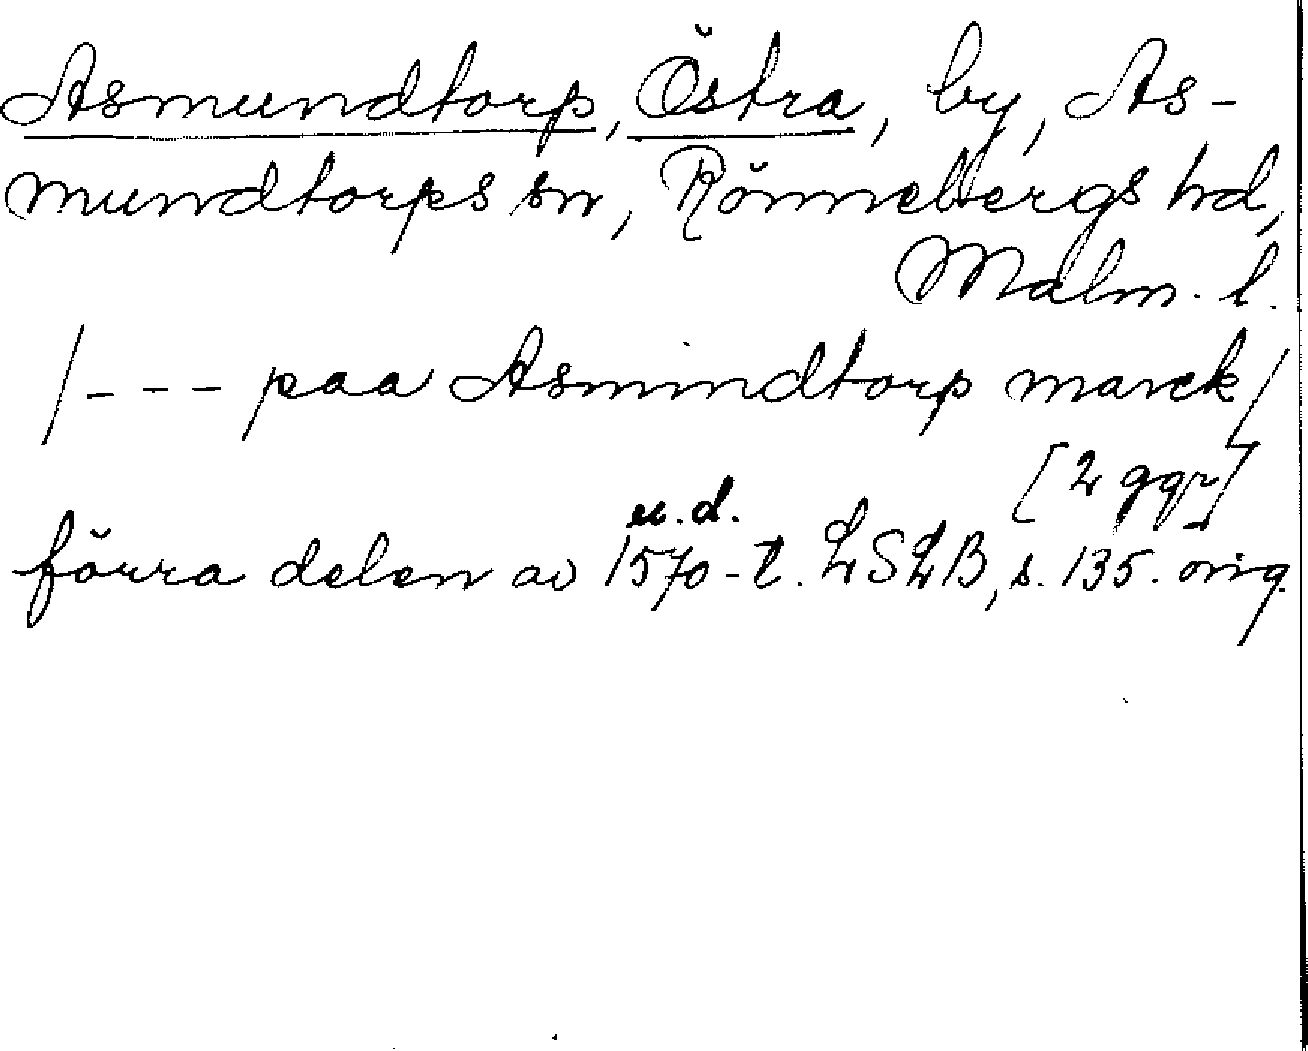 Asmundtorp, Östra, by, As-
mundtorps sn, Rönnebergs hd,
Malm. l.
/--- paa Asmindtorp marck/
[2 ggr]
u.d.
förra delen av 1570-t. LSLB, s. 135. orig.